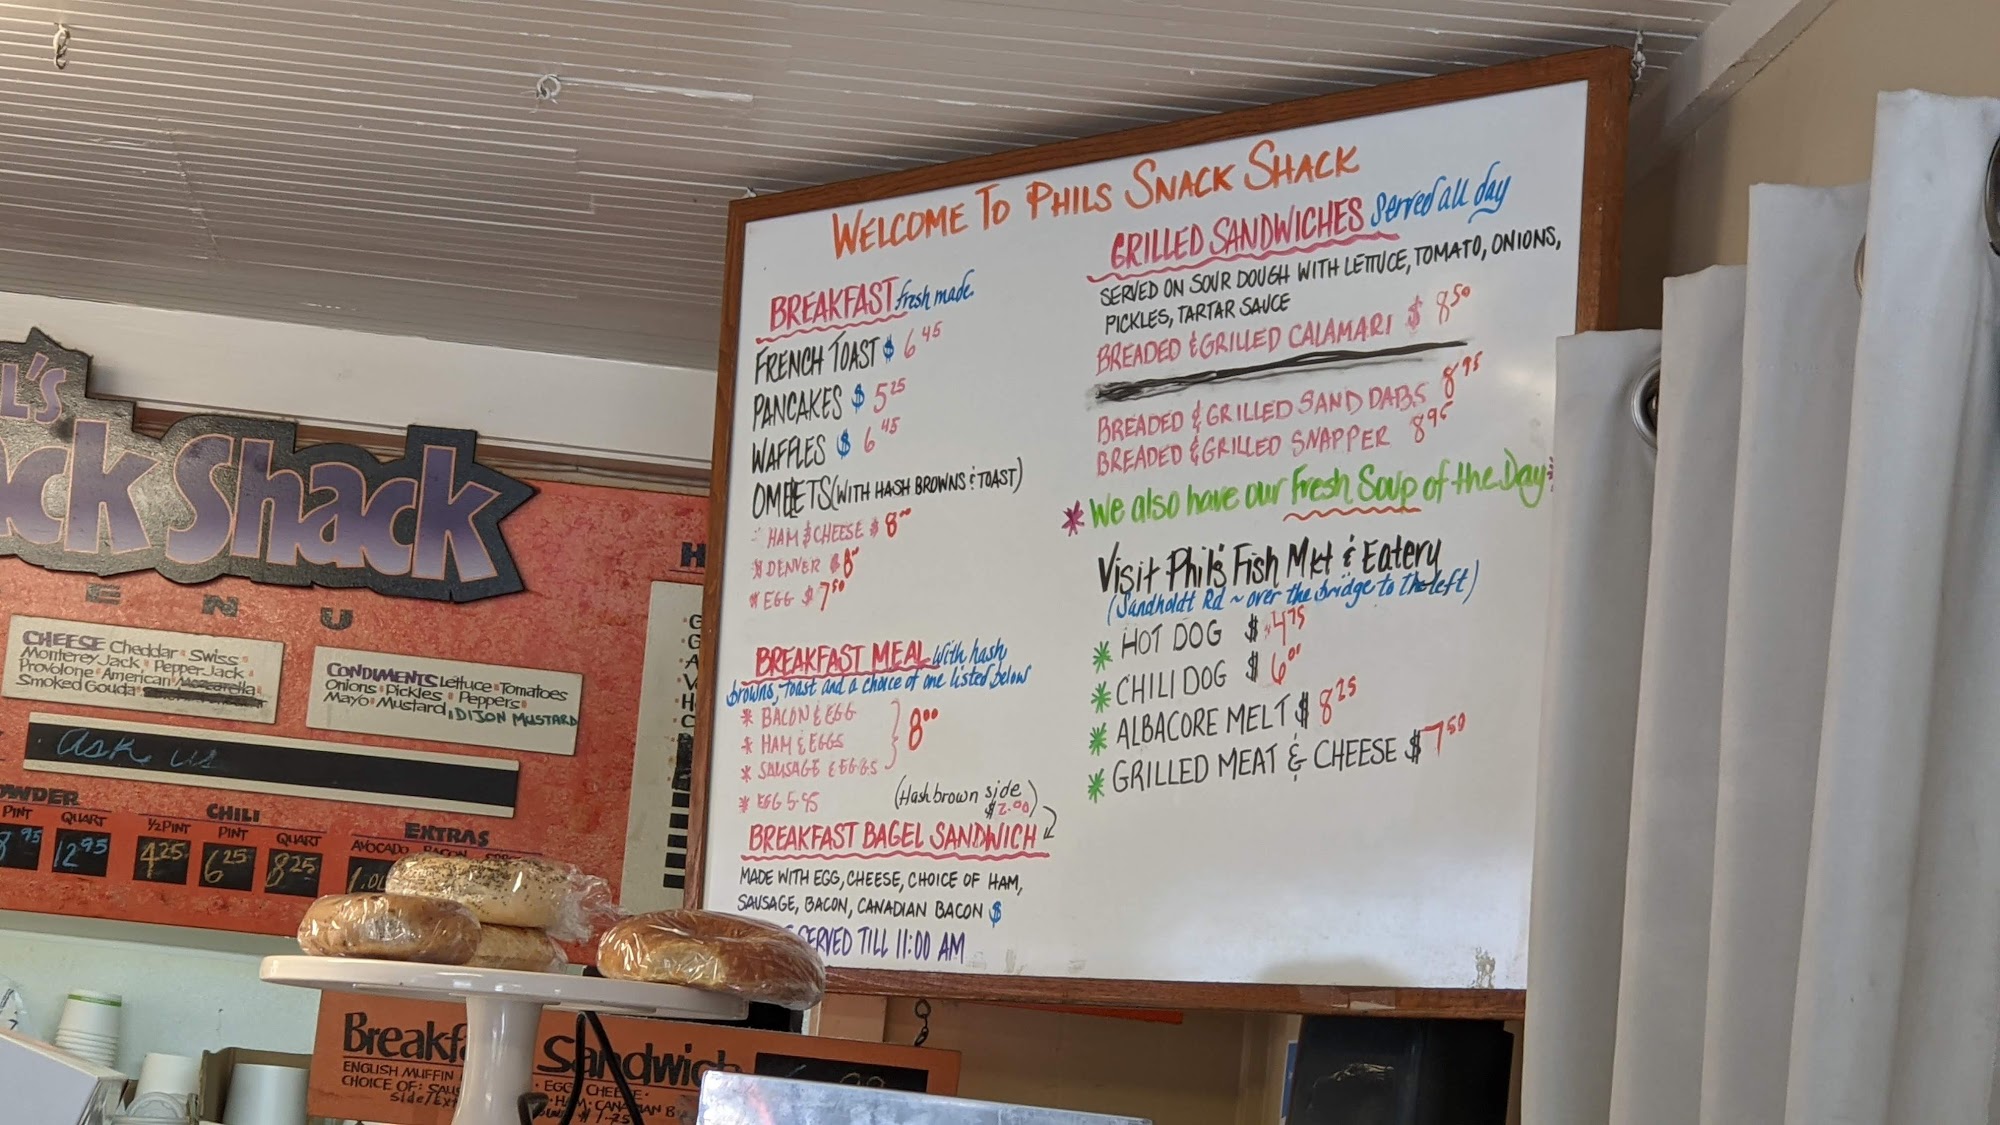 WELCOME TO PHILS SNACK SHACK
BREAKFAST fresh made
FRENCH TOAST $ 6 45
PANCAKES $ 5 25
WAFFLES $ 6 45
OMLETS (WITH HASH BROWNS & TOAST)
HAM & CHEESE $ 8 00
* DENVER $ 8 00
* EGG $ 7 50
BREAKFAST MEAL with hash
browns, toast and a choice of one listed below
* BACON & EGG
* HAM & EGGS
* SAUSAGE & EGGS
} 8 00
* EGG 5.95
(Hashbrown side
$2.00)
BREAKFAST BAGEL SANDWICH
MADE WITH EGG, CHEESE, CHOICE OF HAM,
SAUSAGE, BACON, CANADIAN BACON $
SERVED TILL 11:00 AM
GRILLED SANDWICHES served all day
SERVED ON SOUR DOUGH WITH LETTUCE, TOMATO, ONIONS,
PICKLES, TARTAR SAUCE
BREADED & GRILLED CALAMARI $ 8 50
BREADED & GRILLED SAND DABS 8 95
BREADED & GRILLED SNAPPER 8 95
* We also have our Fresh Soup of the Day *
Visit Phil's Fish Mkt & Eatery
(Sandholdt Rd ~ over the bridge to the left)
* HOT DOG $ 4 75
* CHILI DOG $ 6 00
* ALBACORE MELT $ 8 25
* GRILLED MEAT & CHEESE $ 7 50
L'S
ck Shack
E N U
CHEESE Cheddar Swiss
Monterey Jack Pepper Jack
Provolone American Mozzarella
Smoked Gouda
CONDIMENTS Lettuce Tomatoes
Onions Pickles Peppers
Mayo Mustard DIJON MUSTARD
ask us
OWDER
PINT QUART
8 95 12 95
CHILI
1/2 PINT PINT QUART
4.25 6 25 8 25
EXTRAS
AVOCADO BACON
H
Breakf
ENGLISH MUFFIN
CHOICE OF:
Sandwich
EGG CHEESE
HAM CANADIAN B